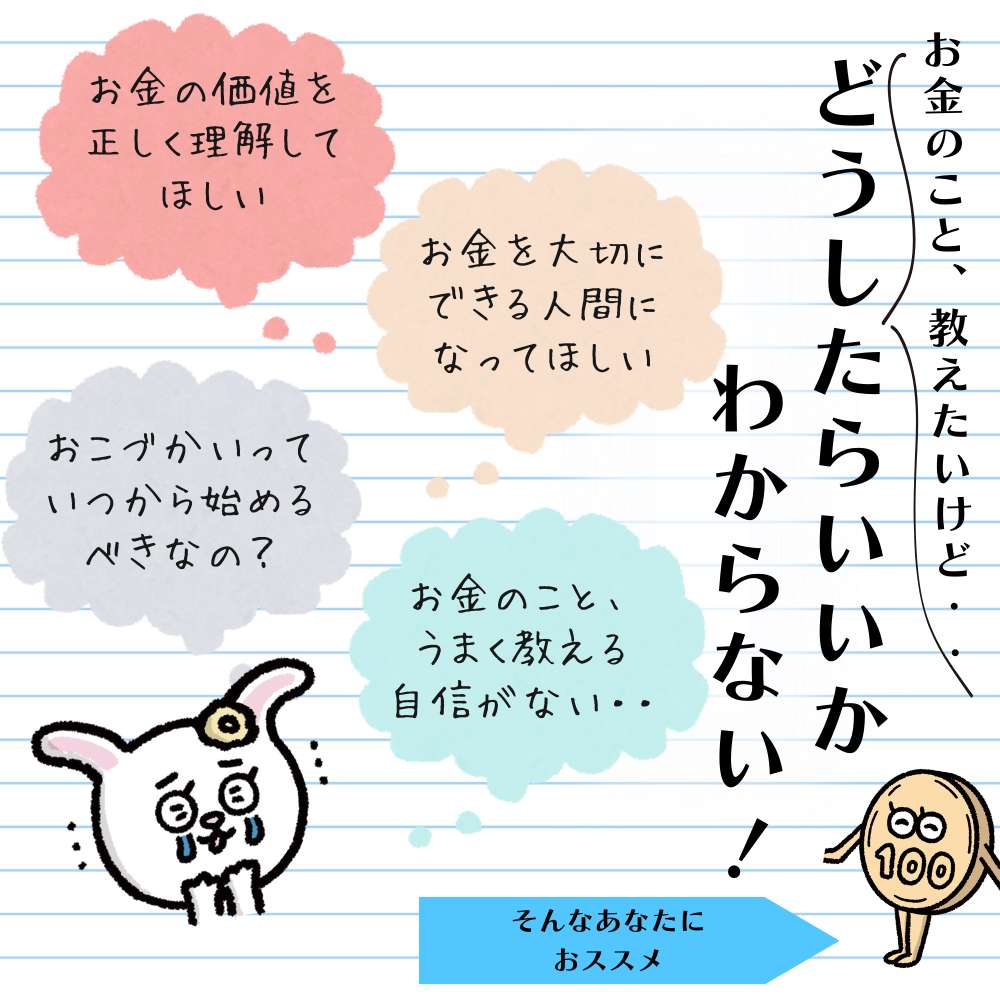 お金のこと、教えたいけど・・
どうしたらいいか
わからない！
お金の価値を
正しく理解して
ほしい
お金を大切に
できる人間に
なってほしい
おこづかいって
いつから始める
べきなの？
お金のこと、
うまく教える
自信がない・・
100
そんなあなたに
おススメ